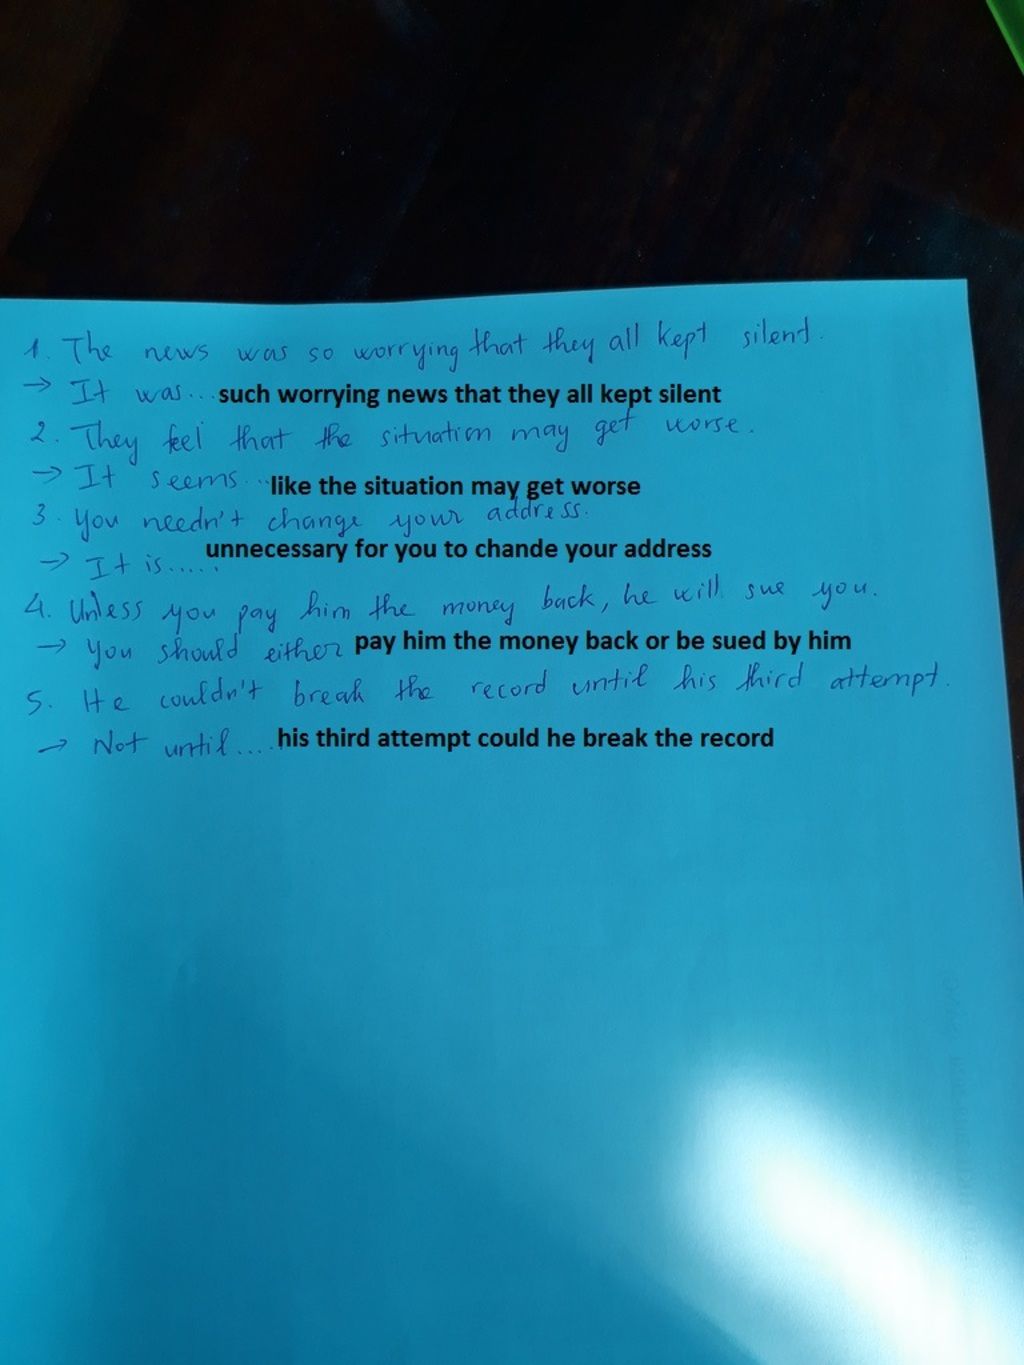 1. The news was so worrying that they all kept silent.
→ It was... such worrying news that they all kept silent
2. They feel that the situation may get worse.
→ It seems... like the situation may get worse
3. You needn't change your address.
→ It is...... unnecessary for you to chande your address
4. Unless you pay him the money back, he will sue you.
→ You should either pay him the money back or be sued by him
5. He couldn't break the record until his third attempt.
→ Not until.... his third attempt could he break the record